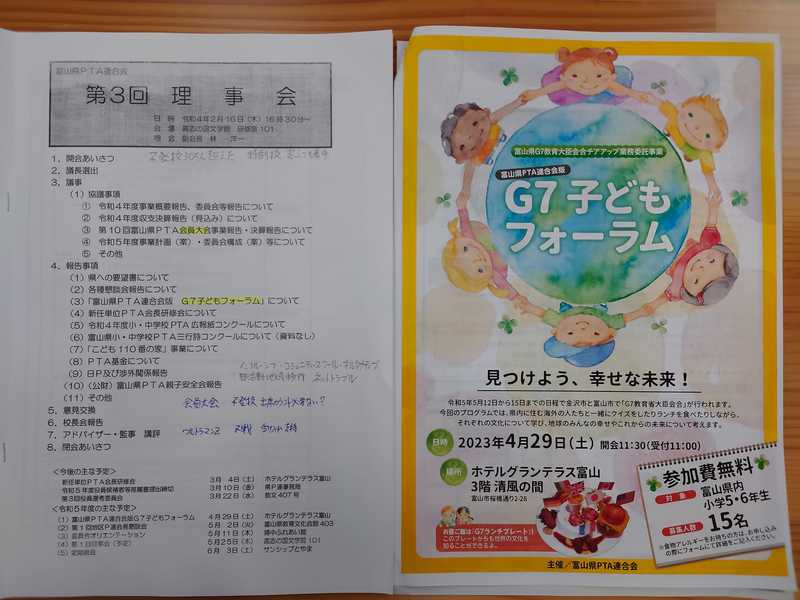 富山県PTA連合会
第3回 理事会
日 時 令和4年2月16日(木)16時30分〜
会 場 高志の国文学館 研修室101
司 会 副会長 林 洋一
1,開会あいさつ
2,議長選出
3,議事
(1)協議事項
① 令和4年度事業概要報告、委員会等報告について
② 令和4年度収支決算報告(見込み)について
③ 第10回富山県PTA会員大会事業報告・決算報告について
④ 令和5年度事業計画(案)・委員会構成(案)等について
⑤ その他
4,報告事項
(1)県への要望書について
(2)各種懇談会報告について
(3)「富山県PTA連合会版 G7子どもフォーラム」について
(4)新任単位PTA会長研修会について
(5)令和4年度小・中学校PTA広報紙コンクールについて
(6)富山県小・中学校PTA三行詩コンクールについて(資料なし)
(7)「こども110番の家」事業について
(8)PTA基金について
(9)日P及び渉外関係報告
(10)(公財)富山県PTA親子安全会報告
(11)その他
会員大会 不登校
5,意見交換
6,校長会報告
7,アドバイザー・監事 講評
ウルトラマンZ
8,閉会あいさつ
<今後の主な予定>
新任単位PTA会長研修会 3月 4日(土)ホテルグランテラス富山
令和5年度役員候補者等推薦書提出締切 3月10日(金)県P連事務局
第3回役員選考委員会 3月22日(水)教文407号
<令和5年度の主な予定>
(1)富山県PTA連合会版G7子どもフォーラム 4月29日(土)ホテルグランテラス富山
(2)第1回地区P連会長懇談会 5月 2日(火)富山県教育文化会館403
(3)委員会オリエンテーション 5月11日(木)
(4)第1回理事会(予定) 5月25日(木)高志の国文学館101
(5)定期総会 6月 3日(土)サンシップとやま
富山県G7教育大臣会合チアアップ業務委託事業
富山県PTA連合会版
G7 子ども
フォーラム
見つけよう、幸せな未来!
令和5年5月12日から15日までの日程で金沢市と富山市で「G7教育省大臣会合」が行われます。
今回のプログラムでは、県内に住む海外の人たちと一緒にクイズをしたりランチを食べたりしながら、
それぞれの文化について学び、地球のみんなの幸せやこれからの未来について考えます。
日時 2023年4月29日(土) 開会11:30(受付11:00)
場所 ホテルグランテラス富山
3階 清風の間
富山市桜橋通り2-28
お昼ご飯は「G7ランチプレート」!
このプレートからも世界の文化を
知ることができるよ。
参加費無料
対象 富山県内
小学5・6年生
募集人数 15名
※食物アレルギーをお持ちの方は、お申し込み
の際にフォームにて詳細をご記入ください。
主催/富山県PTA連合会